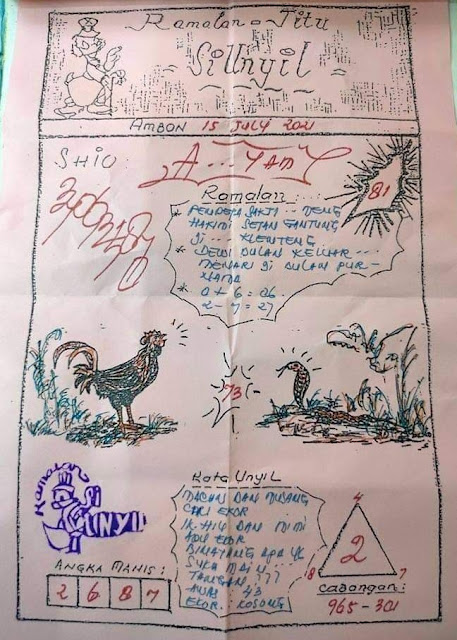 Ramalan - Jitu
SiUnyil
AMBON 15 JULY 2021
SHIO: A...YAM
81
Ramalan:
* PENDEKAR SAKTI ... DENG
HAKIMI SETAN GANTUNG
Di ... KLENTENG
* DEWI BULAN KELUAR ...
MENARI Di BULAN PUR-
NAMA
* 0 + 6 = 06
2 - 7 = 27
73
Kata UNYIL
MACAN DAN MUSANG
CARI EKOR ...
IKHIU DAN MIMI
ADU EKOR
BINATANG APA YG
SUKA MAIN ...
TANGAN ???
AWAS : 43
EKOR : KOSONG
Ramalan
Si
UNYIL
ANGKA MANIS:
2 6 8 7
4
2
8 7
Cabangan:
965 - 301